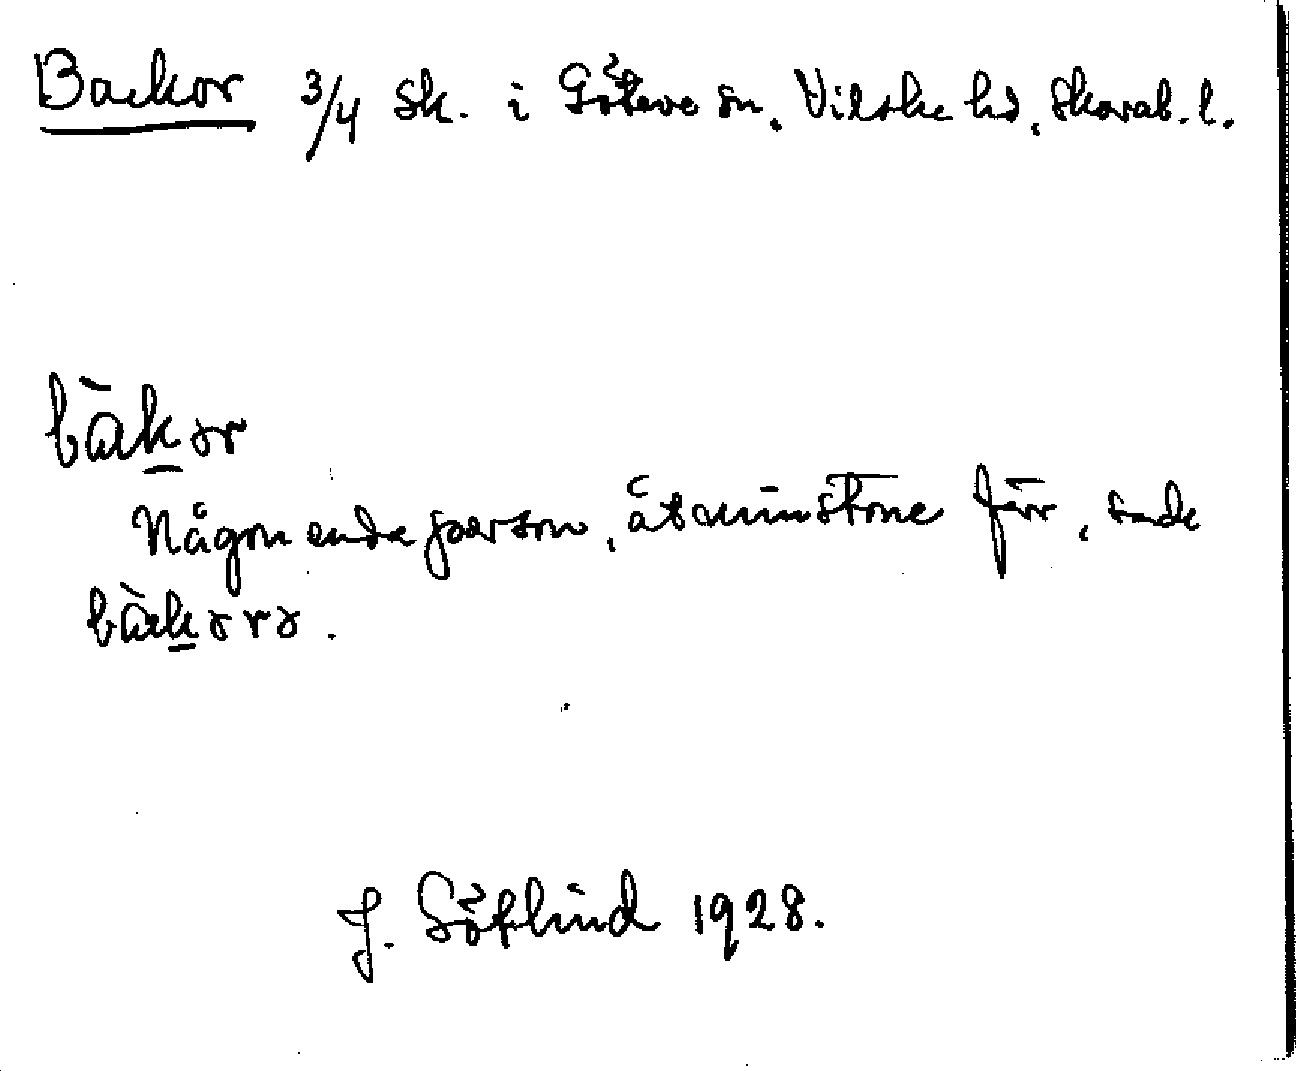 Backor 3/4 sk. i Göteve sn, Vilske hd, Skarab. l.
bàk̲ər
Någon enda person, åtminstone förr, sade
bàk̲ərə.
J. Götlind 1928.